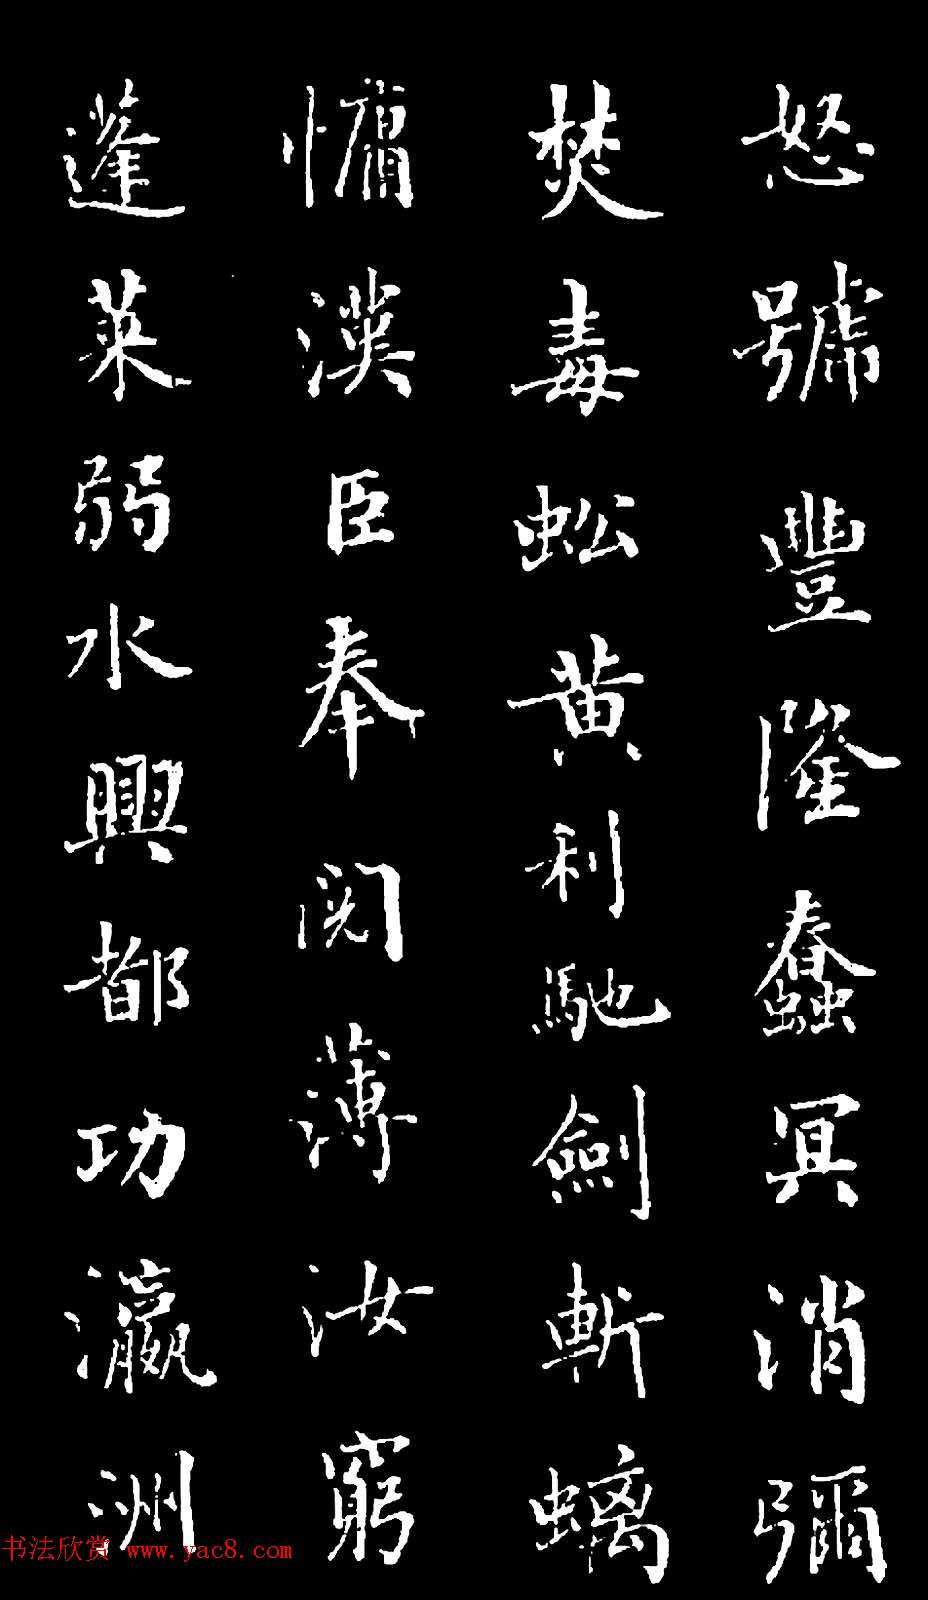 怒號豐隆蠢冥消彌
焚毒蚣黃利馳劍斬螭
慵漢臣奉閱薄汝窮
蓬萊弱水興都功瀛洲
书法欣赏 www.yac8.com